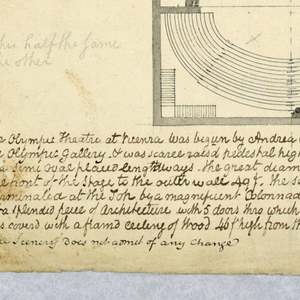 this half the same
the other
Olympic Theatre at Vicenza was begun by Andrea
Olympic Gallery. it was scarce raisd pedestal high
a Semi Oval placed lengthways. the great diam
front of the Stage to the outer wall 49 f. the
uminated at the Top by a magnificent Colonnad
a Splendid peice of Architecture with 5 doors thro which
is coverd with a framd Ceiling of Wood 46 f high from th
Scenery does not admit of any Change